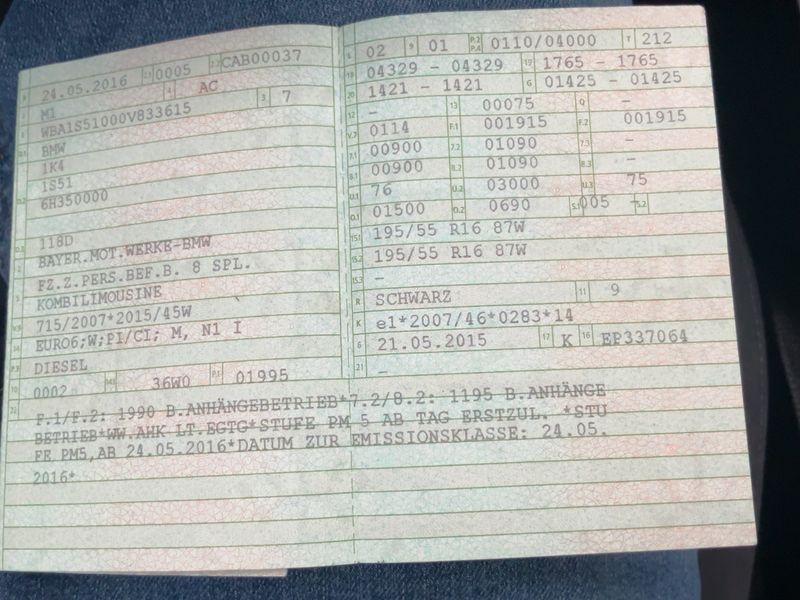 B 24.05.2016 2.1 0005 2.2 CAB00037
J M1 4 AC
E WBA1S51000V833615 3 7
D.1 BMW
1K4
1S51
D.2 6H350000
D.3 118D
2 BAYER.MOT.WERKE-BMW
FZ.Z.PERS.BEF.B. 8 SPL.
5 KOMBILIMOUSINE
V.9 715/2007*2015/45W
14 EURO6;W;PI/CI; M, N1 I
P.3 DIESEL
10 0002 14.1 36W0 P.1 01995
L 02 9 01 P.2 P.4 0110/04000 T 212
18 04329 - 04329 19 1765 - 1765
20 1421 - 1421 G 01425 - 01425
12 - 13 00075 Q -
V.7 0114 F.1 001915 F.2 001915
7.1 00900 7.2 01090 7.3 -
8.1 00900 8.2 01090 8.3 -
U.1 76 U.2 03000 U.3 75
O.1 01500 O.2 0690 S.1 005 S.2 -
15.1 195/55 R16 87W
15.2 195/55 R16 87W
15.3 -
R SCHWARZ 11 9
K e1*2007/46*0283*14
6 21.05.2015 17 K 16 EP337064
21 -
22 F.1/F.2: 1990 B.ANHÄNGEBETRIEB*7.2/8.2: 1195 B.ANHÄNGE
BETRIEB*WW.AHK LT.EGTG*STUFE PM 5 AB TAG ERSTZUL. *STU
FE PM5,AB 24.05.2016*DATUM ZUR EMISSIONSKLASSE: 24.05.
2016*